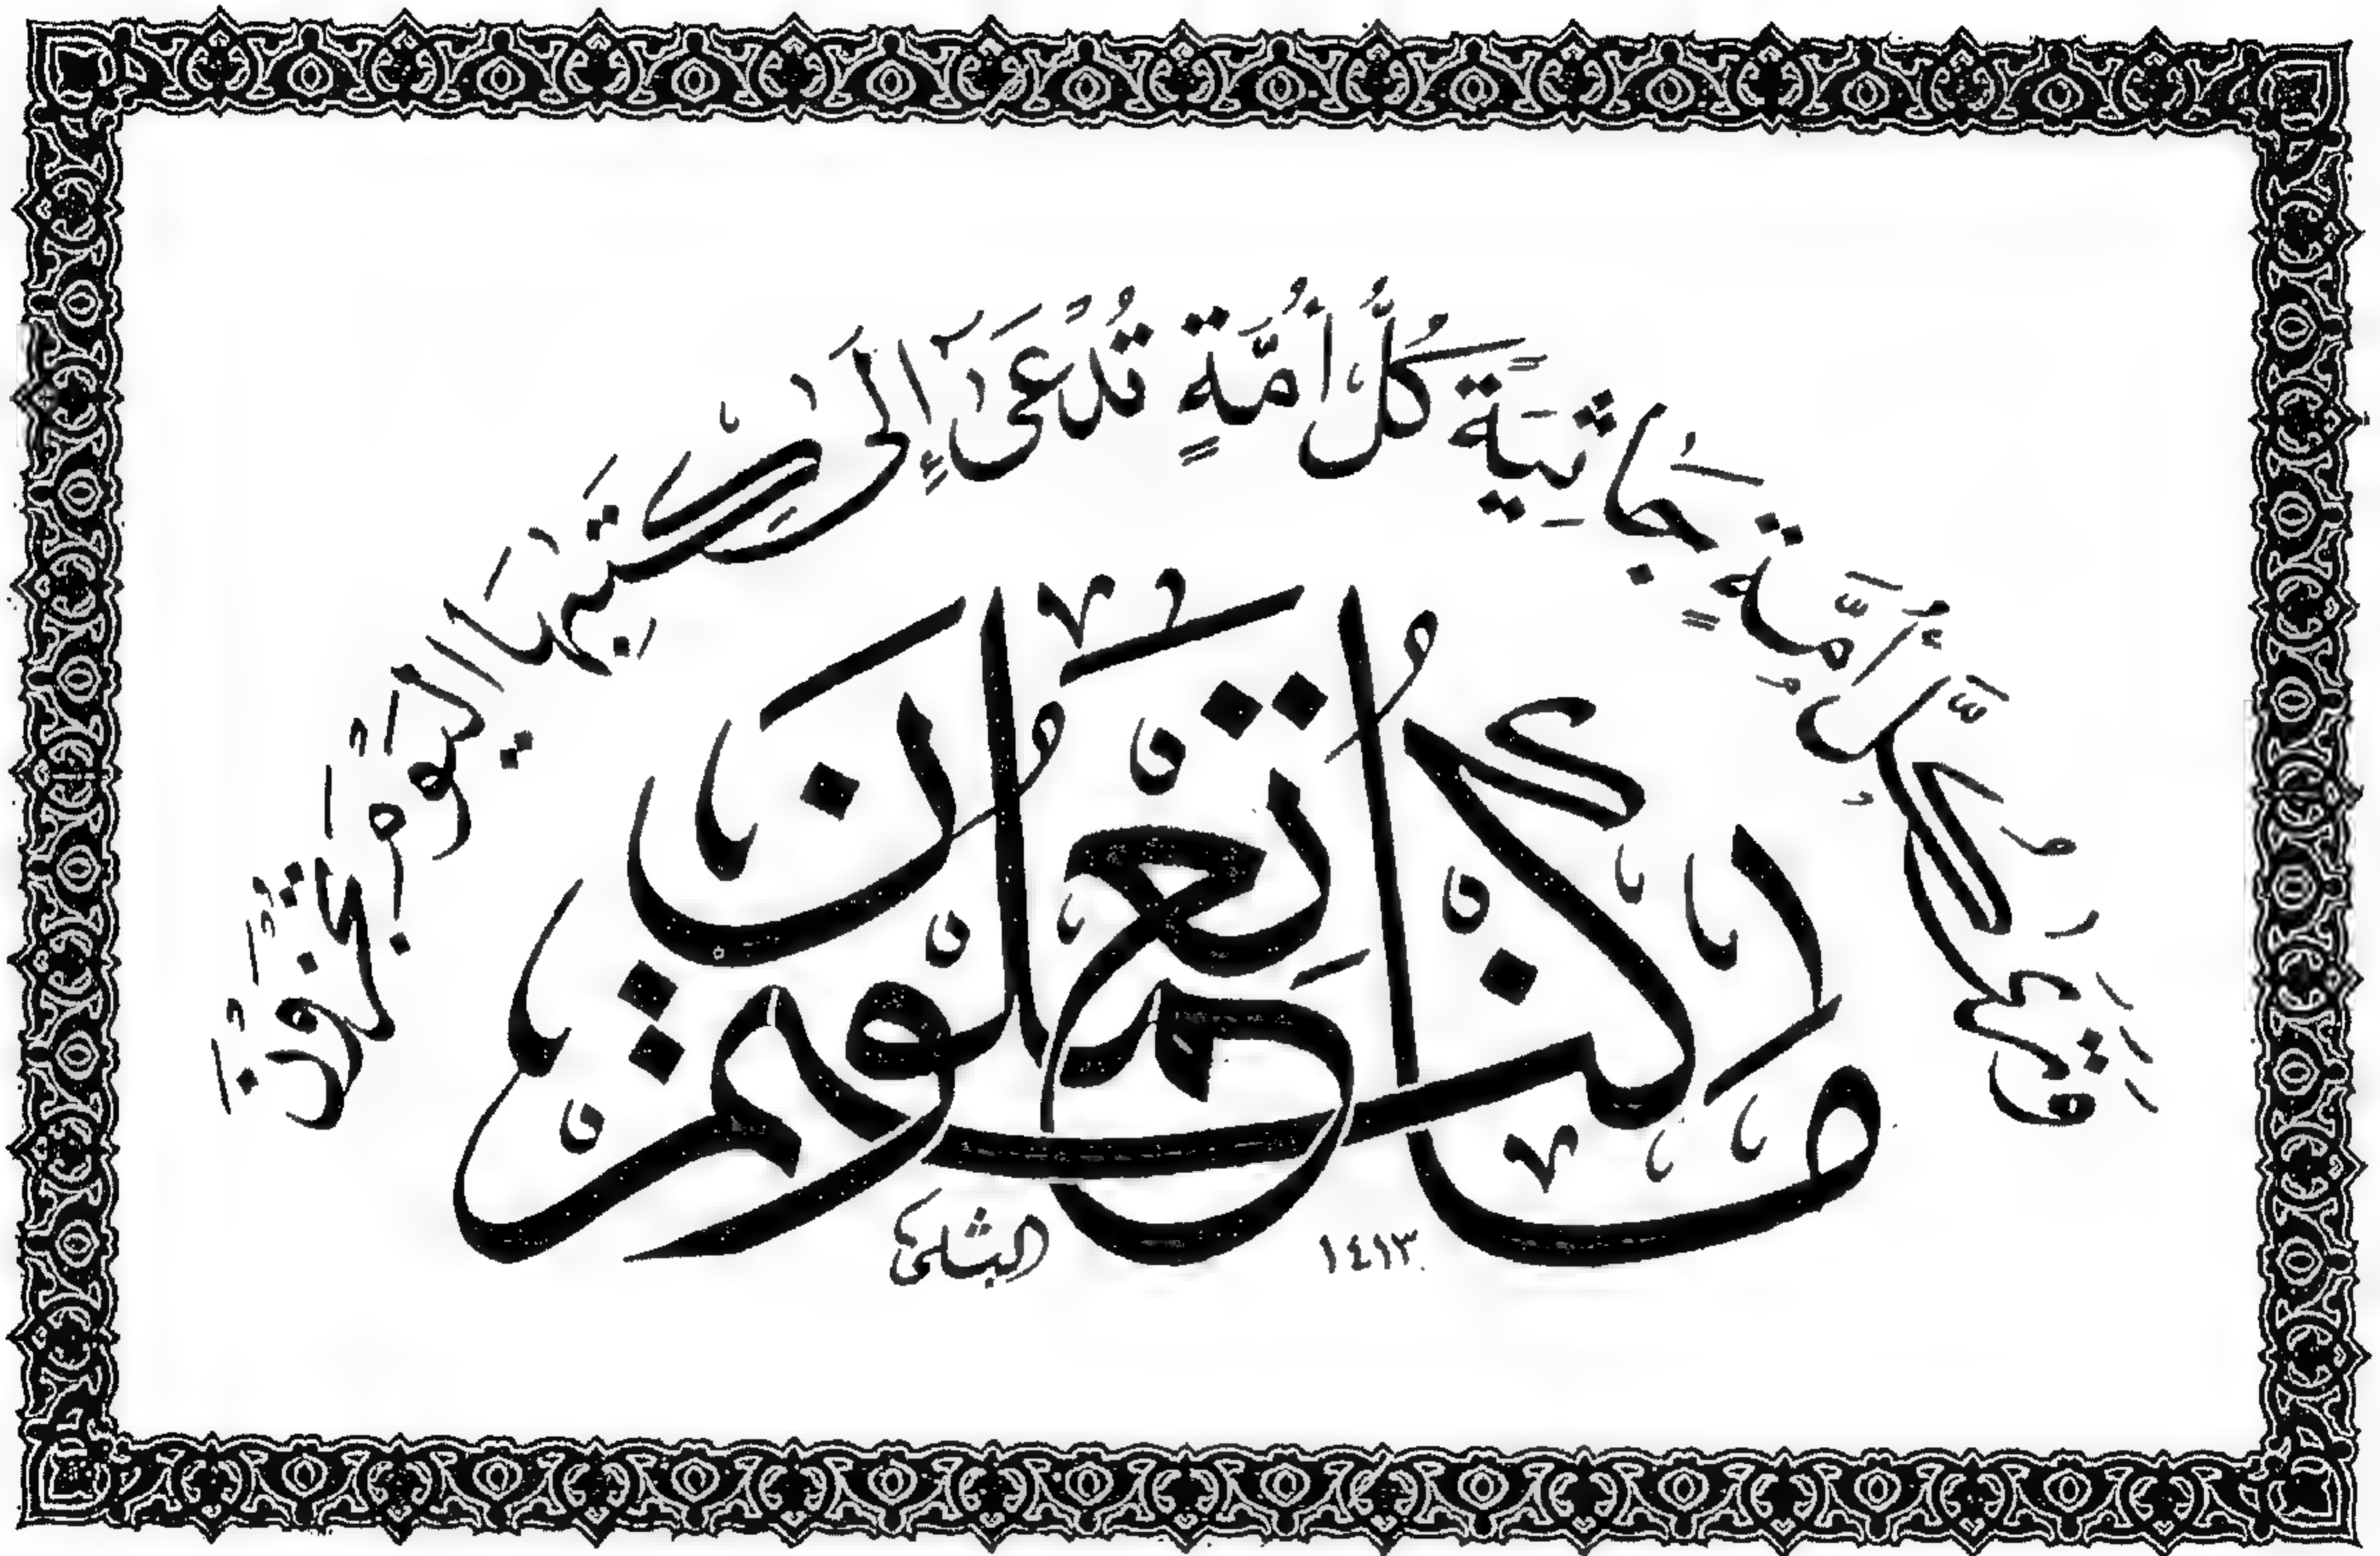 وَتَرَىٰ كُلَّ أُمَّةٍ جَاثِيَةً كُلُّ أُمَّةٍ تُدْعَىٰٓ إِلَىٰ كِتَٰبِهَا الْيَوْمَ تُجْزَوْنَ
مَا كُنتُمْ تَعْمَلُونَ
١٤١٣